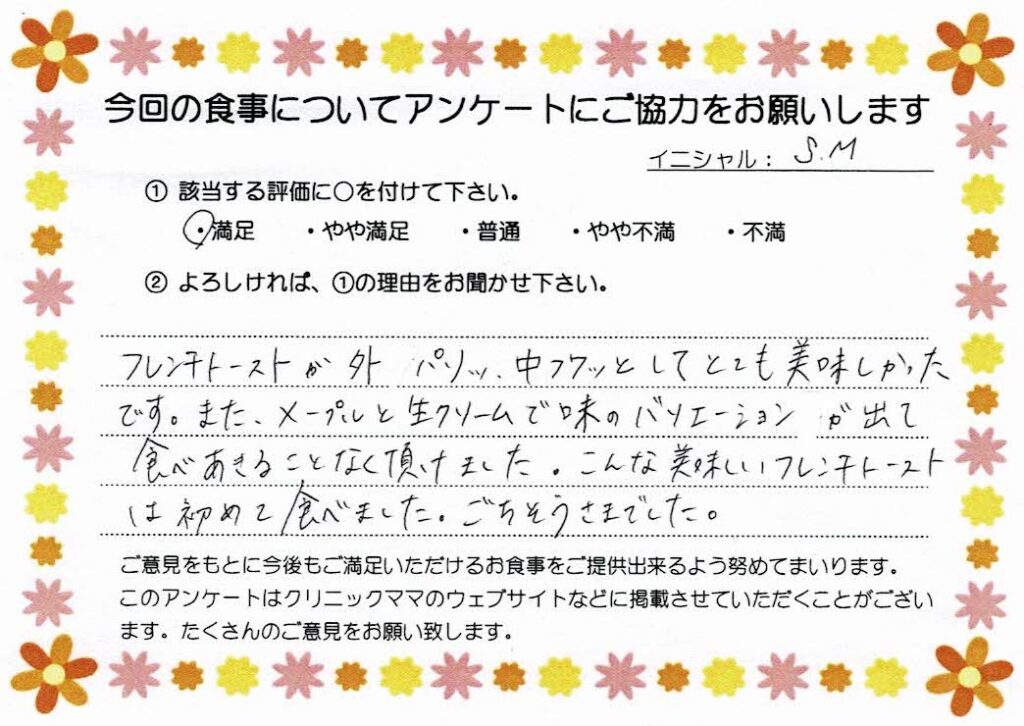 今回の食事についてアンケートにご協力をお願いします
イニシャル： S.M
① 該当する評価に○を付けて下さい。
・満足 ・やや満足 ・普通 ・やや不満 ・不満
② よろしければ、①の理由をお聞かせ下さい。
フレンチトーストが外 パリッ、中フワッとしてとても美味しかった
です。また、メープルと生クリームで味のバリエーションが出て
食べあきることなく頂けました。こんな美味しいフレンチトースト
は初めて食べました。ごちそうさまでした。
ご意見をもとに今後もご満足いただけるお食事をご提供出来るよう努めてまいります。
このアンケートはクリニックママのウェブサイトなどに掲載させていただくことがござい
ます。たくさんのご意見をお願い致します。